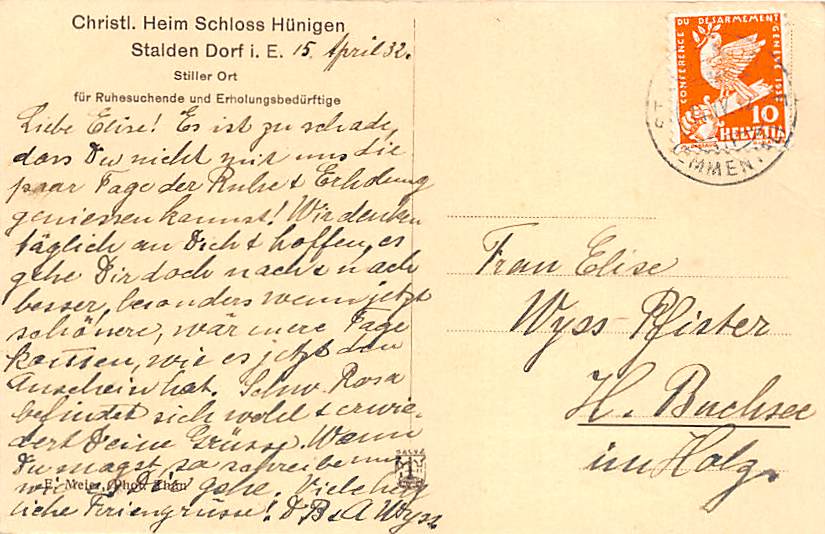 Christl. Heim Schloss Hünigen
Stalden Dorf i. E. 15. April 32.
Stiller Ort
für Ruhesuchende und Erholungsbedürftige
Liebe Elise! Es ist zu schade,
dass Du nicht mit uns die
paar Tage der Ruhe & Erholung
geniessen kannst! Wir denken
täglich an Dich & hoffen, es
gehe Dir doch nach & nach
besser, besonders wenn jetzt
schönere, wärmere Tage
kommen, wie es jetzt den
Anschein hat. Schw. Rosa
befindet sich wohl & erwie-
dert Deine Grüsse. Wenn
Du magst, so schreibe mir
wie es Dir gehe. Viele herz
liche Feriengrüsse! D B & A Wyss.
E. Meier, Phot. Thun
CONFÉRENCE DU DÉSARMEMENT GENÈVE 1932
10
HELVETIA
Frau Elise
Wyss-Pfister
H. Buchsee
im Holz.